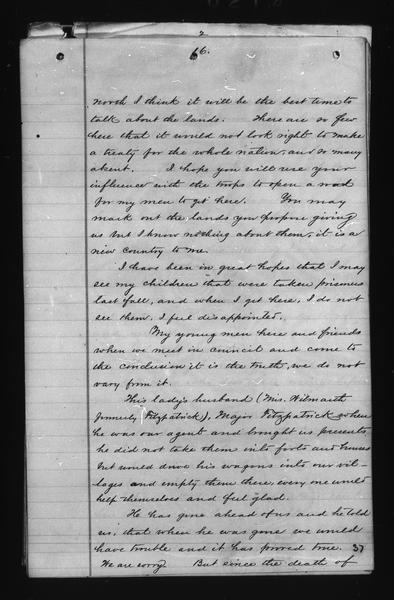 2
16.
north I think it will be the best time to
talk about the lands. There are so few
here that it would not look right to make
a treaty for the whole nation, and so many
absent. I hope you will use your
influence with the troops to open a road
for my men to get here. You may
mark out the lands you propose giving
us but I know nothing about them, it is a
new country to me.
I have been in great hopes that I may
see my children that were taken prisoners
last fall, and when I get here, I do not
see them. I feel disappointed.
My young men here and friends
when we meet in council and come to
the conclusion it is the truth, we do not
vary from it.
This lady's husband (Mrs. Wilmarth
formerly Fitzpatrick), Major Fitzpatrick when
he was our agent and brought us presents
he did not take them into forts and houses
but would drive his wagons into our vil-
lages and empty them there, every one would
help themselves and feel glad.
He has gone ahead of us and he told
us, that when he was gone we would
have trouble and it has proved true. 37
We are sorry But since the death of